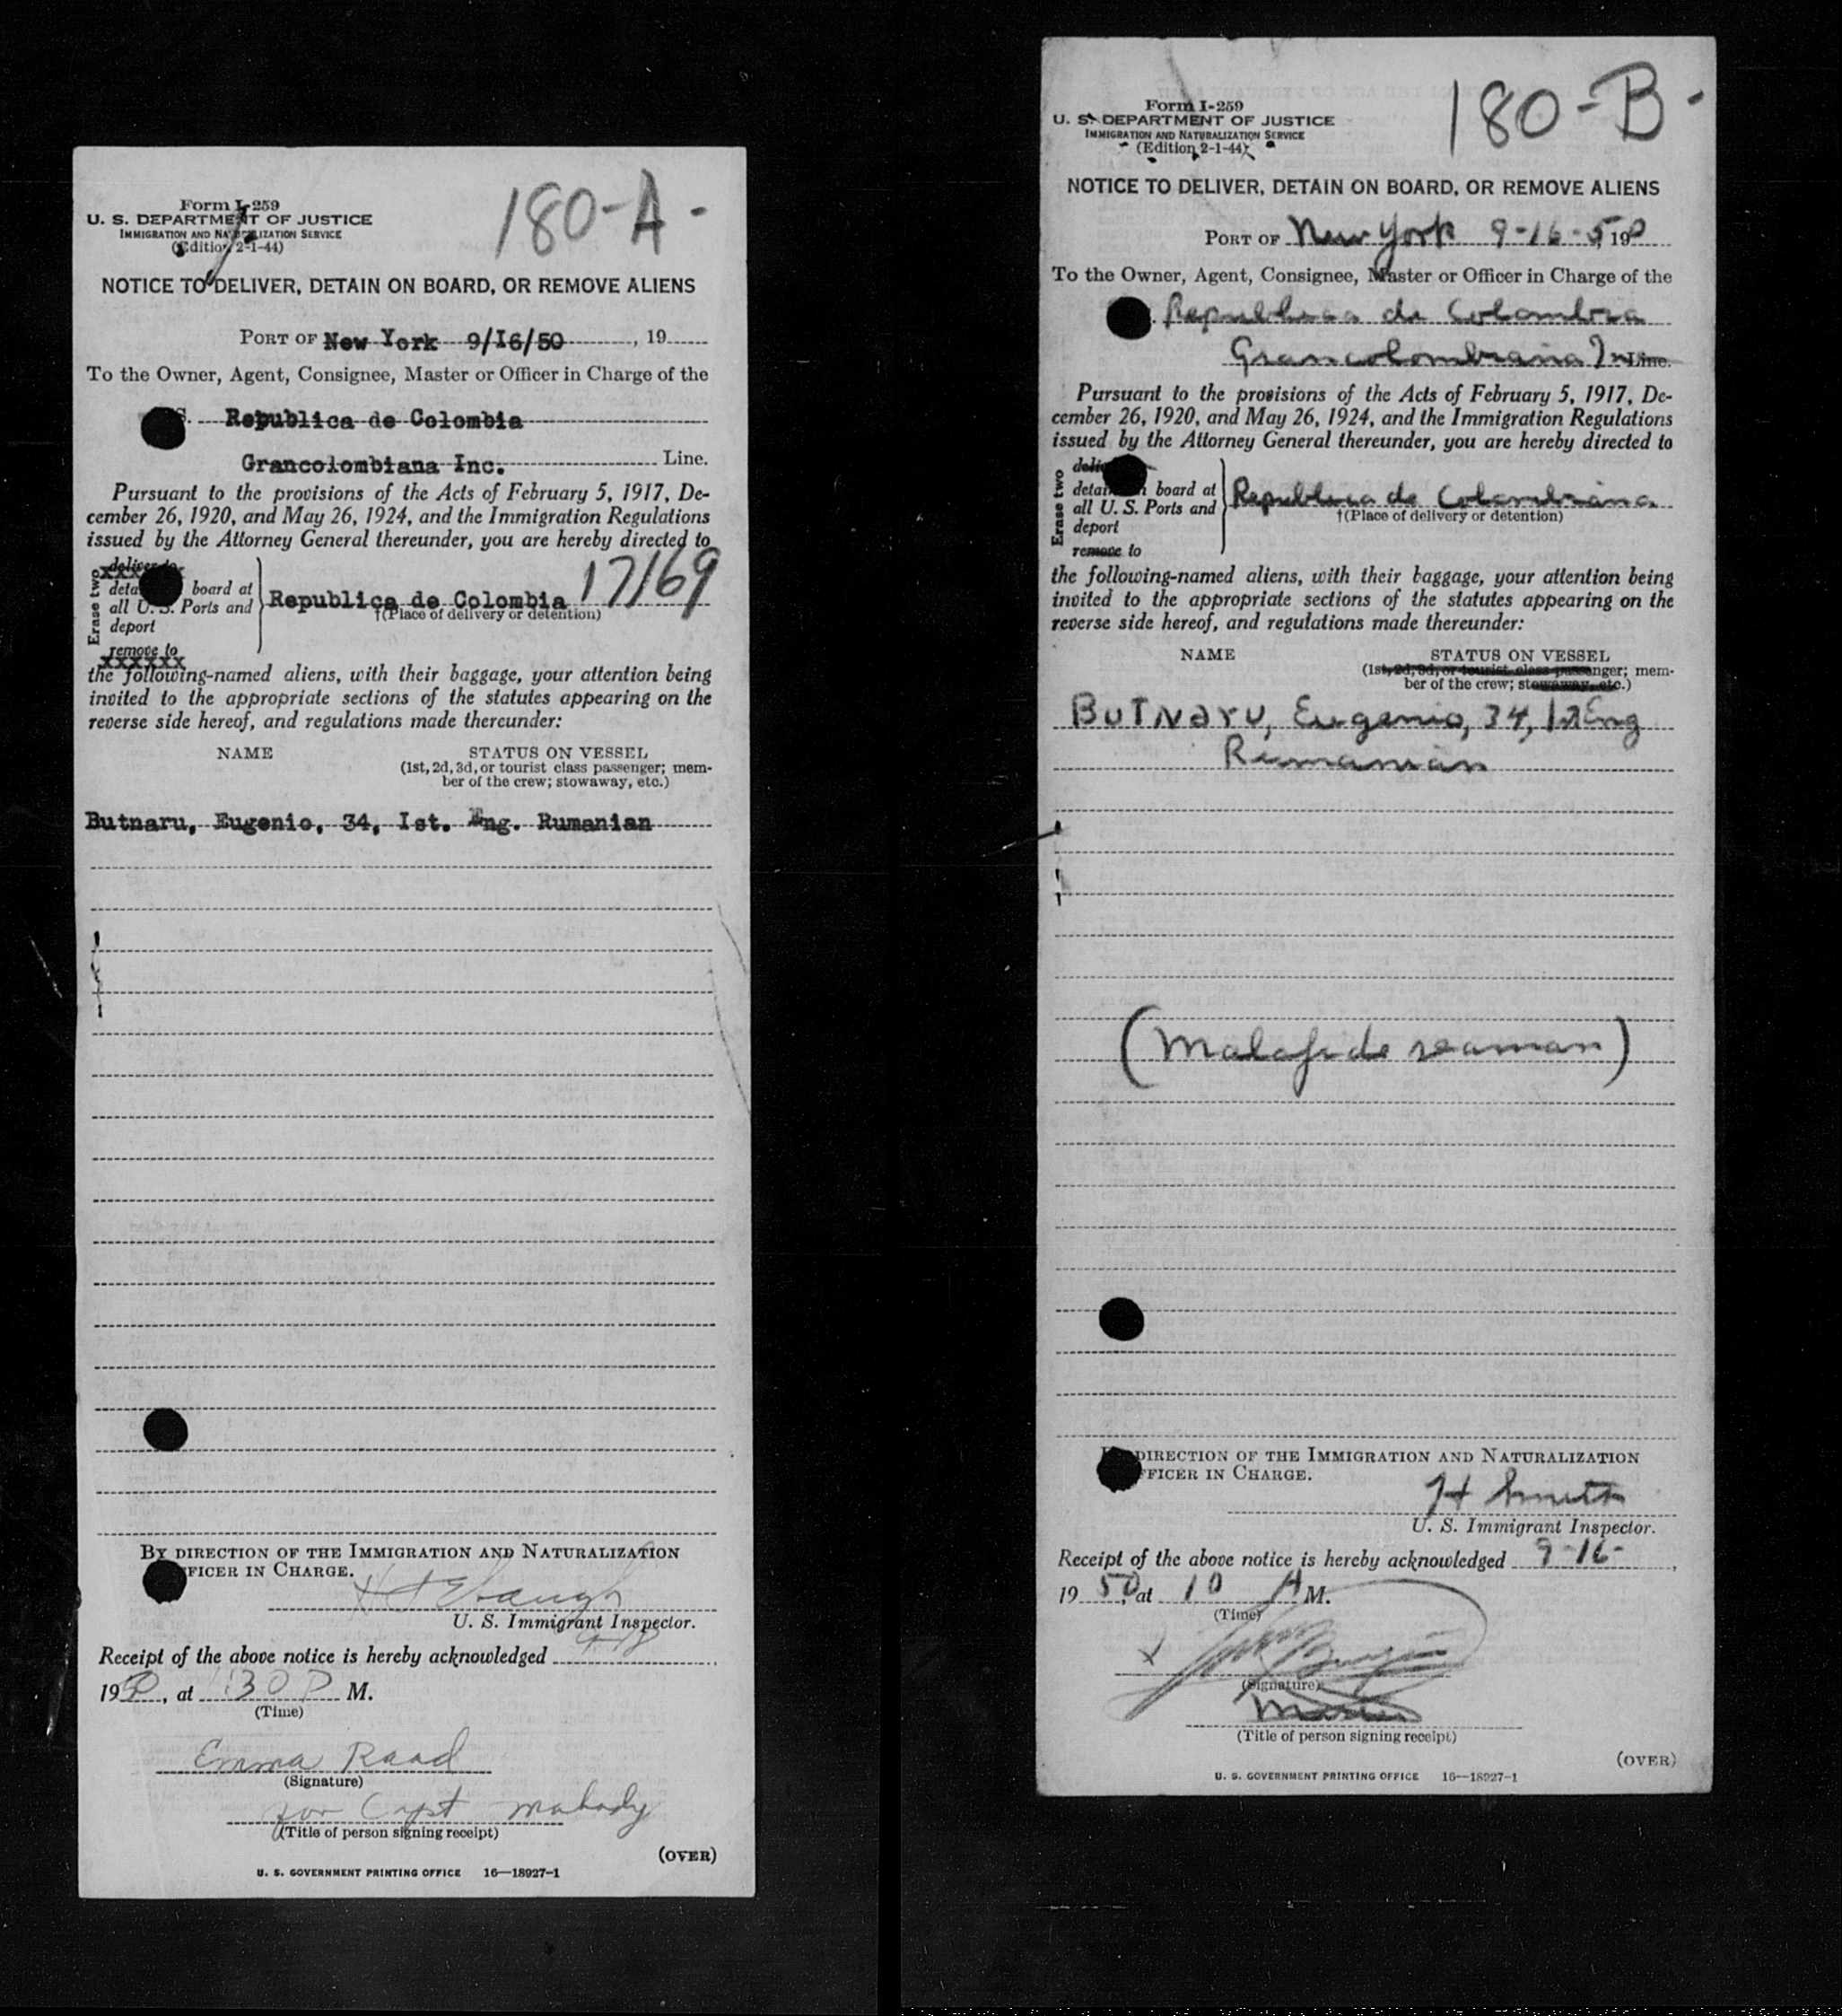 180-A-
Form I-259
U. S. DEPARTMENT OF JUSTICE
IMMIGRATION AND NATURALIZATION SERVICE
(Edition 2-1-44)
NOTICE TO DELIVER, DETAIN ON BOARD, OR REMOVE ALIENS
PORT OF New York 9/I6/50, 19
To the Owner, Agent, Consignee, Master or Officer in Charge of the
S. Republica de Colombia
Grancolombiana Inc. Line.
Pursuant to the provisions of the Acts of February 5, 1917, De-
cember 26, 1920, and May 26, 1924, and the Immigration Regulations
issued by the Attorney General thereunder, you are hereby directed to
17/69
Erase two
deliver to
deta board at
all U. S. Ports and
deport
remove to
Republica de Colombia
†(Place of delivery or detention)
the following-named aliens, with their baggage, your attention being
invited to the appropriate sections of the statutes appearing on the
reverse side hereof, and regulations made thereunder:
NAME STATUS ON VESSEL
(1st, 2d, 3d, or tourist class passenger; mem-
ber of the crew; stowaway, etc.)
Butnaru, Eugenio, 34, Ist. Eng. Rumanian
BY DIRECTION OF THE IMMIGRATION AND NATURALIZATION
FICER IN CHARGE.
U. S. Immigrant Inspector.
Receipt of the above notice is hereby acknowledged 9-18
1950, at 130 P M.
(Time)
Emma Raad
(Signature)
for Capt Mahady
(Title of person signing receipt)
(OVER)
U. S. GOVERNMENT PRINTING OFFICE 16—18927-1
180-B-
Form I-259
U. S. DEPARTMENT OF JUSTICE
IMMIGRATION AND NATURALIZATION SERVICE
(Edition 2-1-44)
NOTICE TO DELIVER, DETAIN ON BOARD, OR REMOVE ALIENS
PORT OF New York 9-16-5 190
To the Owner, Agent, Consignee, Master or Officer in Charge of the
Republica de Colombia
Grancolombiana Inc Line.
Pursuant to the provisions of the Acts of February 5, 1917, De-
cember 26, 1920, and May 26, 1924, and the Immigration Regulations
issued by the Attorney General thereunder, you are hereby directed to
Erase two
deli
detain board at
all U. S. Ports and
deport
remove to
Republica de Colombiana
†(Place of delivery or detention)
the following-named aliens, with their baggage, your attention being
invited to the appropriate sections of the statutes appearing on the
reverse side hereof, and regulations made thereunder:
NAME STATUS ON VESSEL
(1st, 2d, 3d, or tourist class passenger; mem-
ber of the crew; stowaway, etc.)
BUTNARU, Eugenio, 34, 1st Eng
Rumanian
(Malafide seaman)
DIRECTION OF THE IMMIGRATION AND NATURALIZATION
FFICER IN CHARGE.
H Smith
U. S. Immigrant Inspector.
Receipt of the above notice is hereby acknowledged 9-16-,
1950, at 10 A M.
(Time)
X
(Signature)
Master
(Title of person signing receipt)
(OVER)
U. S. GOVERNMENT PRINTING OFFICE 16—18927-1